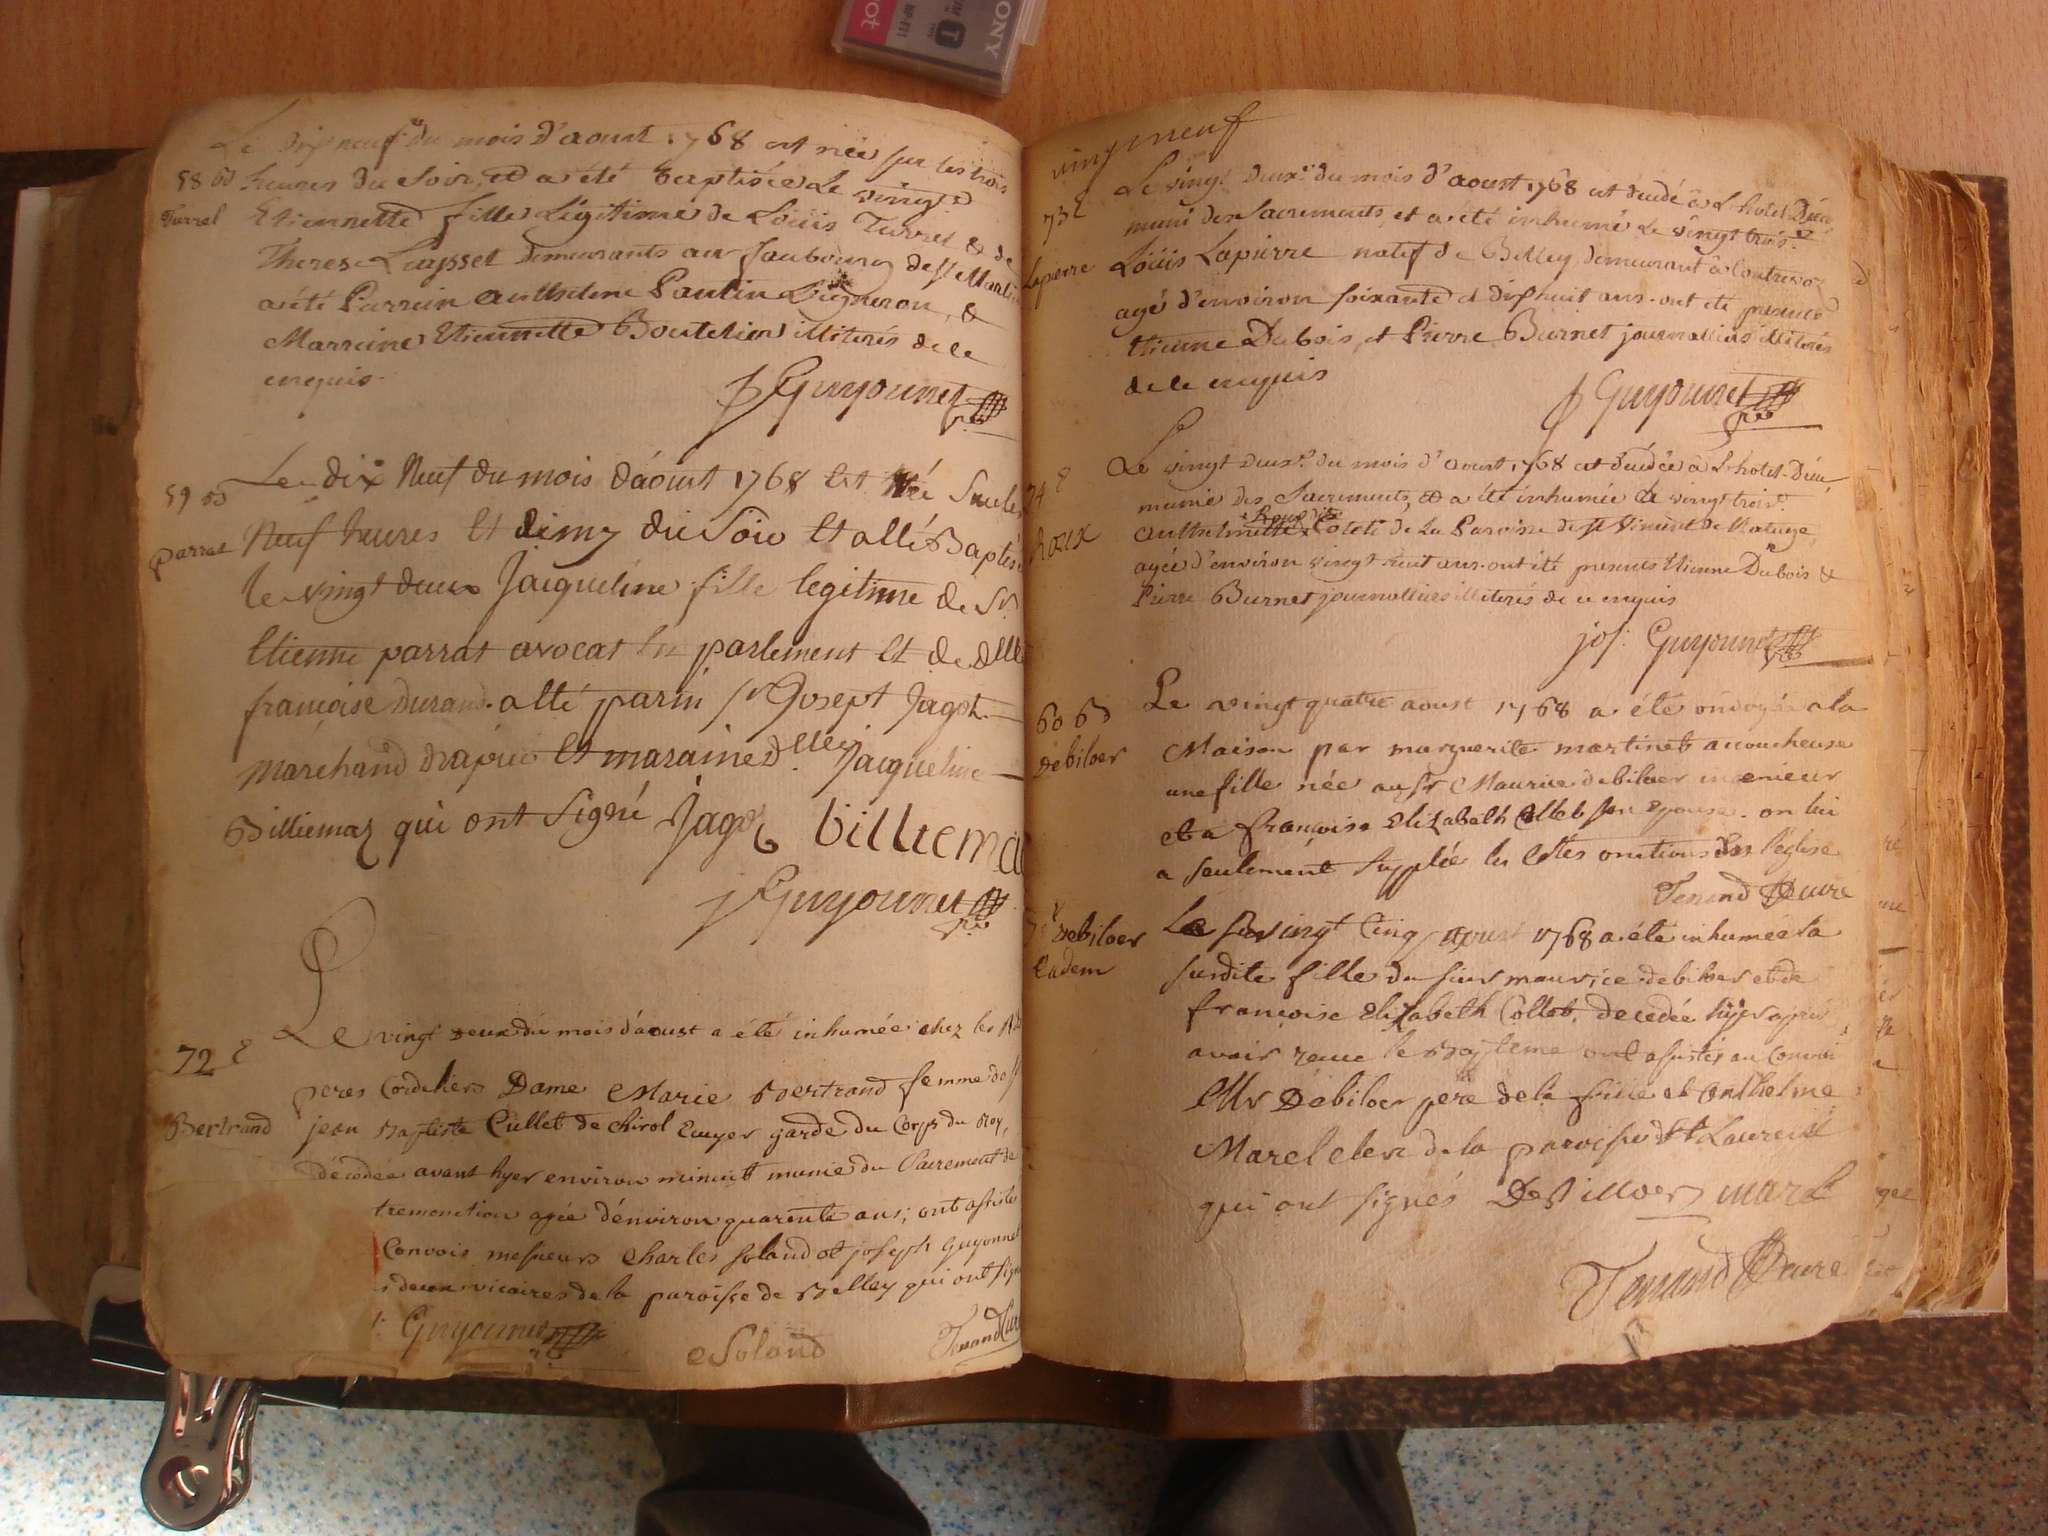 SONY
Le dixneuf du mois d'aoust 1768 est née sur les trois
58 bd heures du Soir, et a été Baptisée Le vingt
Turrel Etiennette fille Légitime de Loüis Turrel & de
Therese Luysset demeurants au fauboury de St Martin
a été Parrein Anthelme Paulin Vigneron, &
Marreine Etiennette Boutelier illiterés de ce
enquis.
J Guyonnet
59 bd Le dix Neuf du mois d'áoust 1768 Est Née Sur les
parrat Neuf heures Et dimy du Soir Et a été Baptisé
le vingt deux Jacqueline fille legitime de Sr
Etienne parrat avocat En parlement Et de dlle
francoise durand. a été parin Sr Josept Jagot
Marchand drapier Et maraine dlle Jacqueline
Billiemaz qui ont Signé Jagot billiema
J Guyonnet
72 e Le vingt deux du mois d'aoust a été inhumée chez les R
peres Cordeliers Dame Marie Bertrand femme de
Bertrand jean Baptiste Cullet de chirol Ecuyer garde du Corps du Roy,
décedée avant hyer environ minuit munie du Sacrement de
tremonction agée d'environ quarente ans; ont assisté
Convois messieurs Charles Soland et joseph Guyonnet
s deux vicaires de la paroisse de Belley qui ont signé
Guyonnet Soland Ferrand Curé
vingt neuf
73 e Le vingt deuxe du mois d'aoust 1768 est décédé à L'hotel Dieu
muni des Sacrements, et a été inhumé le vingt trois
Lapierre Loüis Lapierre natif de Belley, demeurant à
agé d'environ soixante et dixhuit ans. ont été présents
Etienne Dubois, et Pierre Burnet journalliers illiterés
de ce enquis
J Guyonnet
74 e Le vingt deuxe du mois d'aoust 1768 est décédée à L'hotel-Dieu,
munie des Sacrements, et a été inhumée le vingt trois.
Roux Anthelmette Roux dite Coleti de La Paroisse de St Vincent de
agée d'environ vingt huit ans. ont été présents Etienne Dubois &
Pierre Burnet journalliers illiterés de ce enquis
jos: Guyonnet
60 bd Le vingt quatre aoust 1768 a été ondoyée a la
debiloer Maison par marguerite martinet accoucheuse
une fille née au Sr Maurice debiloer ingenieur
et a françoise Elizabeth Collot son epouse. on lui
a seulement supplée les Stes onctions de l'église
Ferrand Curé
debiloer Le vingt Cinq aoust 1768 a été inhumée la
Eadem susdite fille du sieur maurice debiloer et de
françoise Elizabeth Collot, decedée hyer après
avoir reçue le Bapteme ont assistés au Convoi
Mr Debiloer pere de la fille et Anthelme
Marel clerc de la paroisse St Laurent
qui ont signés De Billoer marel
Ferrand Curé